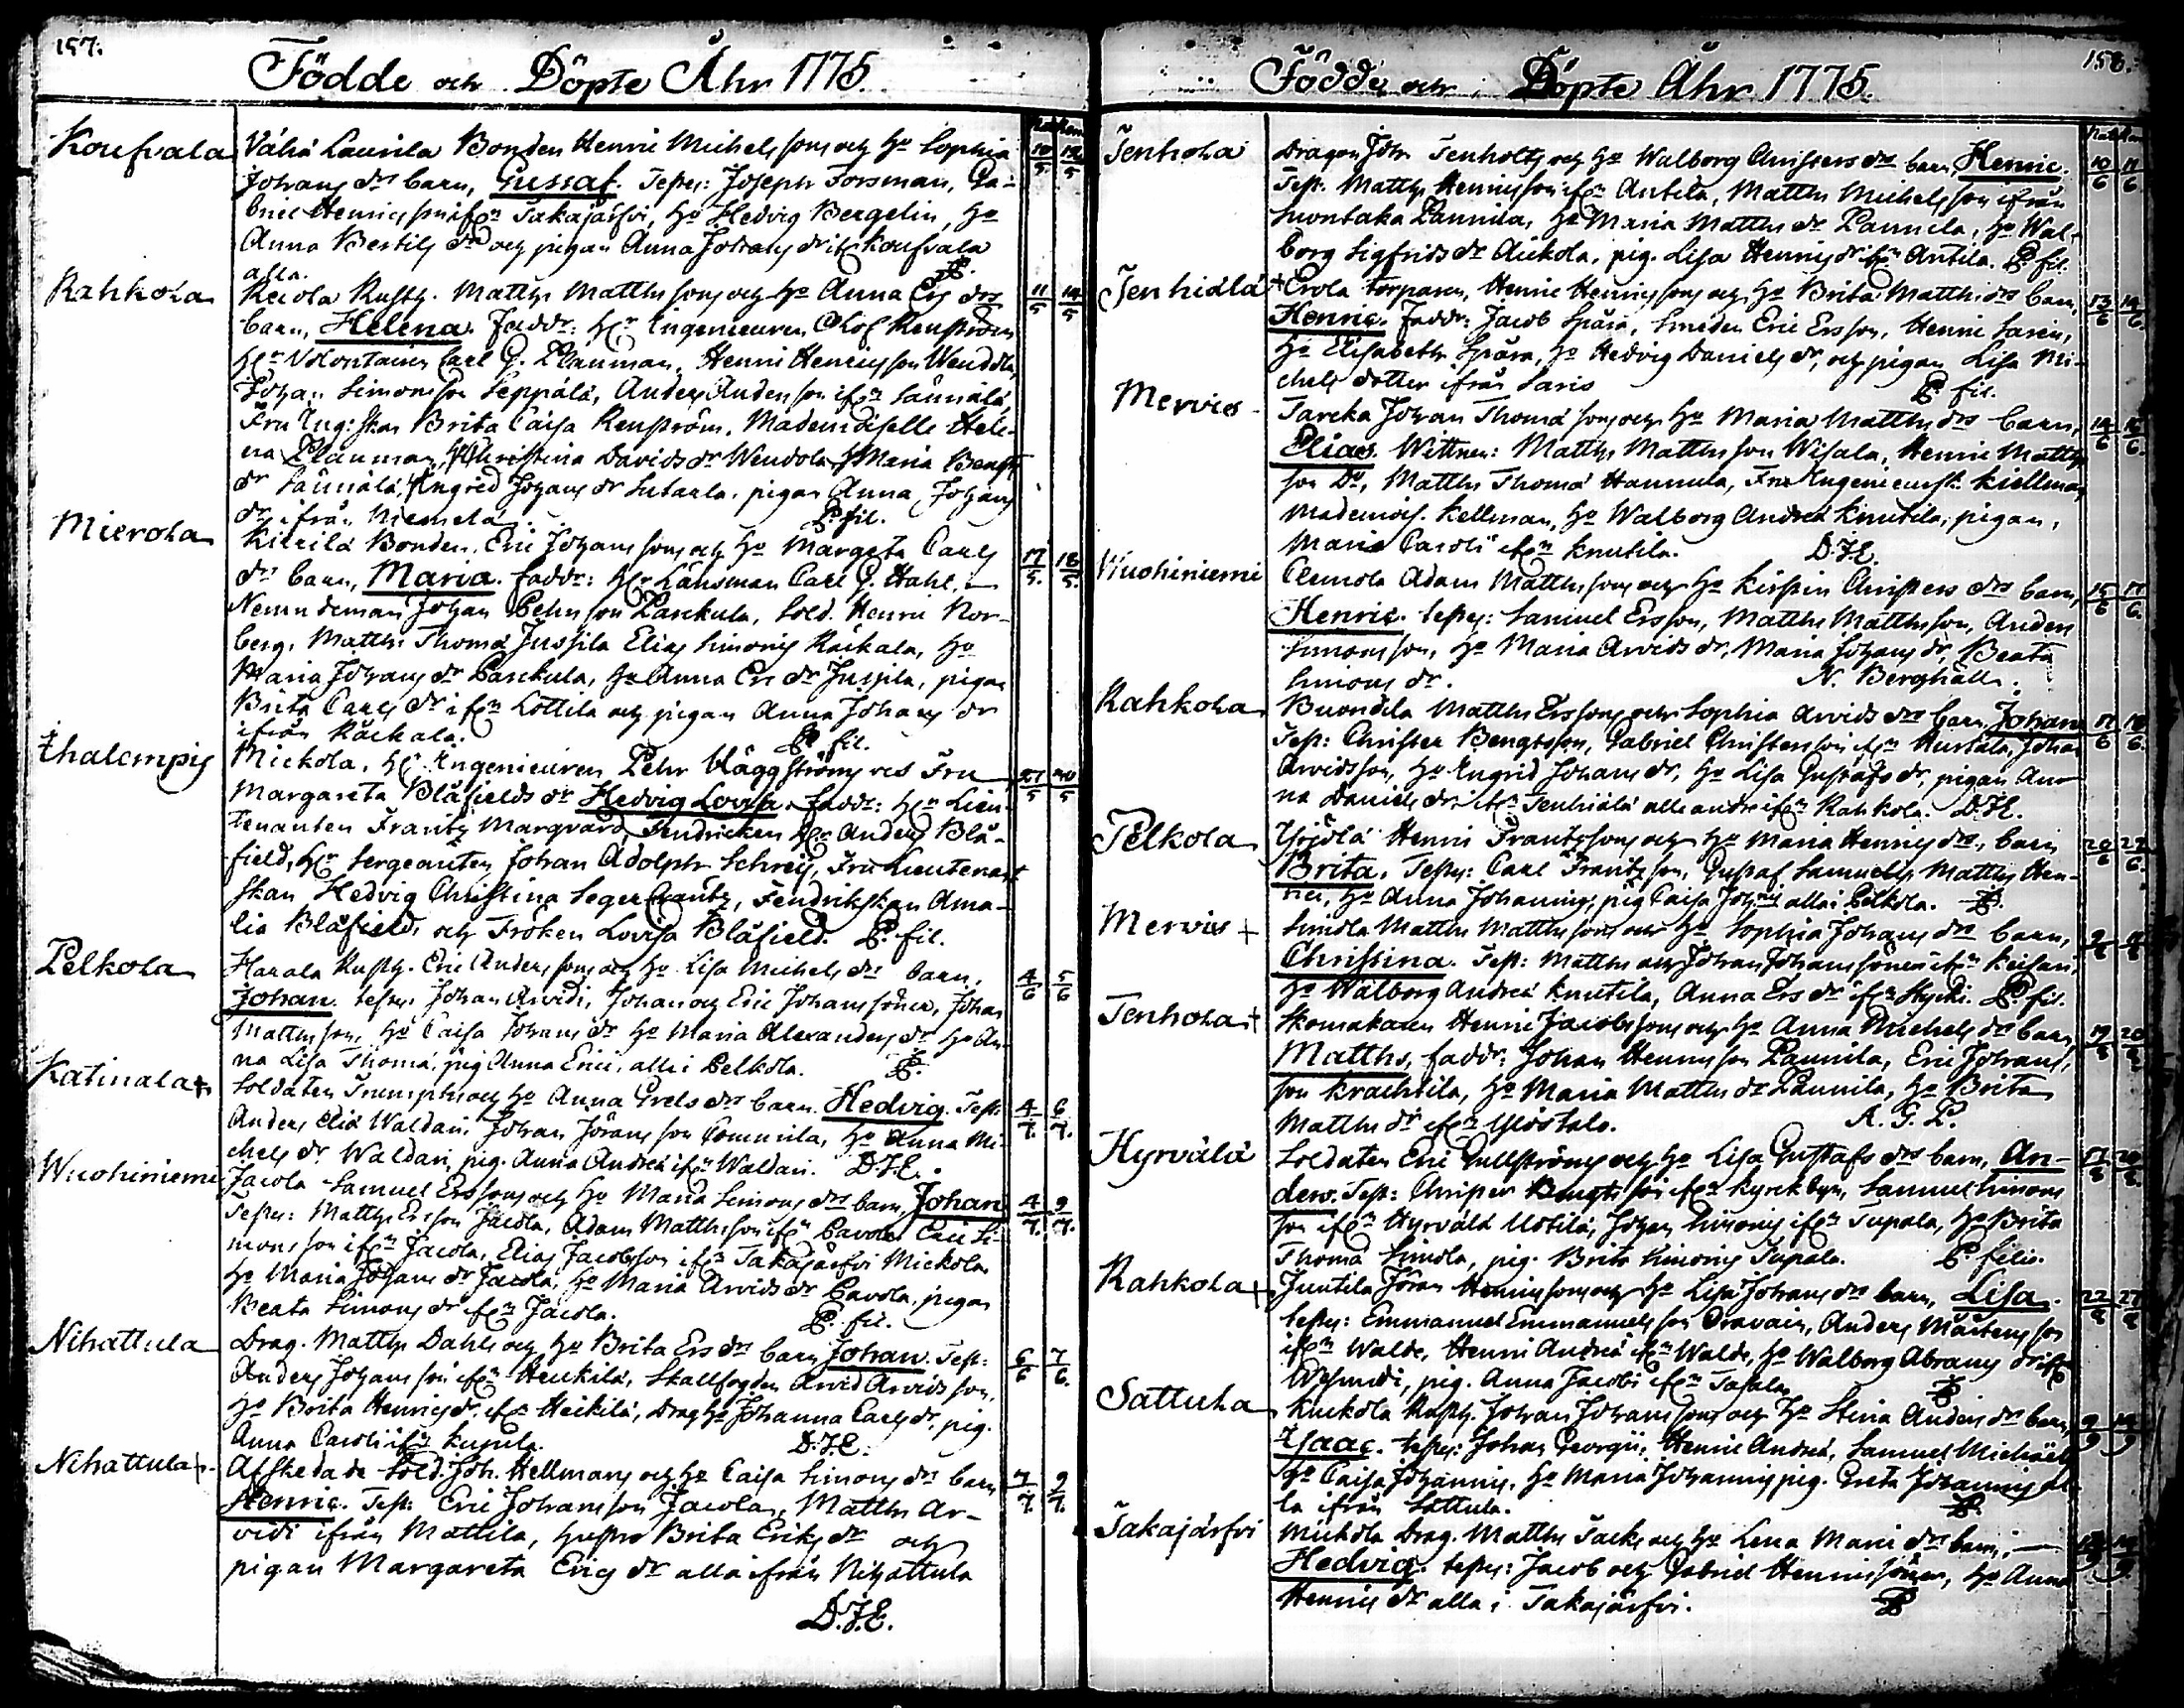 157.
Födde och Döpte Åhr 1775.
Koufvala
Vähä Laurila Bonden Henric Michels sons och H° Sophia 10/5 12/5
Johans drs barn, Gustaf. Testes: Joseph Forsman, Ga-
briel Henrics son ifrn Takajärfvi, H° Hedvig Bergelin, H°
Anna Bertils dr och pigan Anna Johans dr ifr Koufvala
alla.
Rahkola
Reiola Rusth. Matths Matths sons och H° Anna Ers drs 11/5 14/5
barn, Helena. Faddr: Hr Ingenieuren Olof Renström
Hr Volontairen Carl G. Plauman, Henric Henrics son Wendola,
Johan Simonsson Seppälä, Anders Andersson ifrn Sännälä,
Fru Ing:skan Brita Caisa Renström, Mademoiselle Hele-
na Plauman, H Christina Davids dr Wendola, H Maria Bengts
dr Sännälä, H Ingred Johans dr Sutarla, pigan Anna Johans
dr ifrån Niemelä. P. fil.
Mierola
Kirrilä Bonden Eric Johans sons och H° Margeta Carls 17/5. 18/5.
drs barn, Maria. faddr: Hr Länsman Carl G. Hahl,
Nemndeman Johan Pehrsson Parckula, Sold. Henric Nor-
berg, Matths Thomä Jussila Elias Simonis Räckala, H°
Maria Johans dr Parckula, H° Anna Ers dr Jussila, pigan
Brita Carls dr ifrn Lottila och pigan Anna Johans dr
ifrån Räckala. P. fil.
Ihalempis
Mickola, Hr Ingenieuren Pehr Häggströms och Fru 27/5 30/5
Margareta Blåfields dr Hedvig Lovisa. faddr: Hr Lieu-
tenanten Frantz Marqvard, Fendricken Hr Anders Blå-
field, Hr Sergeanten Johan Adolph Schreij, Fru Lieutenant
skan Hedvig Christina Segercrantz, Fendrikskan Ama-
lia Blåfield, och Fröken Lovisa Blåfield. P. fil.
Pelkola
Harala Rusth. Eric Anders sons och H° Lisa Michels drs barn, 4/6 5/6
Johan. testes: Johan Arvidi, Johan och Eric Johans söner, Johan
Matths son, H° Caisa Johans dr H° Maria Alexanders dr H° An-
na Lisa Thomä, pig. Anna Erici, alle i Pelkola.
Katinala +
Soldaten Triumphs och H° Anna Grels drs barn. Hedvig. Test: 4/7. 6/7.
Anders Eliä Waldari, Johan Jörans son Commila, H° Anna Mi-
chels dr Waldari, pig. Anna Andreä ifrn Waldari. D.J.E.
Wuohiniemi
Jacola Samuel Ers sons och H° Maria Simons drs barn, Johan 4/7. 9/7.
Testes: Matths Ersson Jacola, Adam Matths son ifrn Pavola Eric Si-
mons son ifrn Jacola, Elias Jacobsson ifrn Takajärfvi Mickola
H° Maria Johans dr Jacola, H° Maria Arvids dr Pavola, pigan
Beata Simons dr ifrn Jacola. P. fil.
Nihattula
Drag. Matths Dahls och H° Brita Ers drs barn Johan. Test: 6/6 7/6.
Anders Johans son ifrn Heikilä, Skallfogden Arvid Arvids son,
H° Brita Henrics dr. ifrn Heikilä, Drag. H° Johanna Carls dr, pig.
Anna Caroli ifrn Kupila. D.J.E.
Nihattula +
Afskedade Sold. Joh. Hellmans och H° Caisa Simons drs barn 7/7. 9/7.
Henric. Test: Eric Johansson Jacola, Matths Ar-
vidi ifrån Mattila, hustru Brita Eriks dr och
pigan Margareta Erics dr alla ifrån Nihattula
D.J.E.
158.
Födde och Döpte Åhr 1775.
Tenhola
Dragon Joh. Tenholts och H° Walborg Christers drs barn, Henric. 10/6 11/6
Test. Matths Henricsson ifrn Antila, Matths Michels son ifrån
Suontaka Paunila, H° Maria Matths dr Paunila, H° Wal-
borg Sigfrids dr Äickola, pig. Lisa Henrics dr ifrn Antila. P. fil.
Tenhiälä +
Erola torparen, Henric Henrics sons och H° Brita Matths drs barn, 13/6 14/6.
Henric. Faddr: Jacob Spåra, Smeden Eric Ersson, Henric Sarin,
H° Elisabeth Spåra, H° Hedvig Daniels dr, och pigan Lisa Mi-
chels dotter ifrån Saris P. fil.
Mervis
Tareka Johan Thomä sons och H° Maria Matths drs barn, 14/6 16/6.
Elias. Wittnen: Matths Matths son Wisala, Henric Matths
son Do, Matths Thomä Hannula, Fru Ingenieursk. Kiellman
Mademois. Kellman, H° Walborg Andreä Knutila, pigan,
Maria Caroli ifrn Knutila. D.J.E.
Wuohiniemi
Clemola Adam Matths sons och H° Kirstin Christers drs barn, 15/6 17/6.
Henric. testes: Samuel Ersson, Matths Matthsson, Anders
Simonsson, H° Maria Arvids dr, Maria Johans dr, Beata
Simons dr. N. Berghäll.
Rahkola
Buondila Matths Erssons och Sophia Arvids drs barn, Johan 17/6 18/6.
Test: Christer Bengtsson, Gabriel Christersson ifrn Hurtala, Johan
Arvidsson, H° Ingrid Johans dr, H° Lisa Gustafs dr, pigan An-
na Daniels dr ifrn Tenhiälä alle andre ifrn Rahkola. D.J.E.
Pelkola
Yrjölä Henric Frantz sons och H° Maria Henrics drs, barn 26/6 27/6.
Brita. Testes: Carl Frantz son, Gustaf Samuels, Matths Hen-
rici, H° Anna Johannis, pig Caisa Johannis alla i Pelkola.
Mervis +
Simola Matths Matths sons och H° Sophia Johans drs barn, 2/8 4/8
Christina. Test: Matths och Johan Johans söner ifrn Keisari,
H° Walborg Andreä Knutila, Anna Ers dr ifrn Hycki. P. fil.
Tenhola +
Skomakaren Henric Jacobs sons och H° Anna Michels drs barn 19/8 20/8
Matths, faddr: Johan Henricsson Paunila, Eric Johans-
son Krachtila, H° Maria Matths dr Paunila, H° Brita
Matths dr ifrn Yliöstalo. A. G. P.
Hyrvälä
Soldaten Eric Gullströms och H° Lisa Gustafs drs barn, An- 17/8 20/8.
ders. Test: Christer Bengts son ifrn Kyrckbyn, Samuel Simons
son ifrn Hyrvälä Uotila, Johan Simonis ifrn Tupala, H° Brita
Thomä Simola, pig. Brita Simonis Tupala. P. filio.
Rahkola +
Juntila Jöran Henrics sons och H° Lisa Johans drs barn, Lisa. 22/8 27/8
testes: Emmanuel Emmanuels son Oravain, Anders Mårtens son
ifrn Walde, Henric Andreä ifrn Walde, H° Walborg Abrams dr ifrn
pig. Anna Jacobi ifrn Tasala
Sattula
Kuckola Rusth. Johan Johans sons och H° Stina Anders drs barn, 9/9 10/9
Isaac. testes: Johan Georgii, Henric Andreä, Samuel Michaëlis
H° Caisa Johannis, H° Maria Johannis pig. Greta Johannis al-
la ifrån Sattula.
Takajärfvi
Mickola Drag. Matths Tacks och H° Lena Mari drs barn,
Hedvig. testes: Jacob och Gabriel Henrics söner, H° Anna
Henrics dr alla i Takajärfvi.